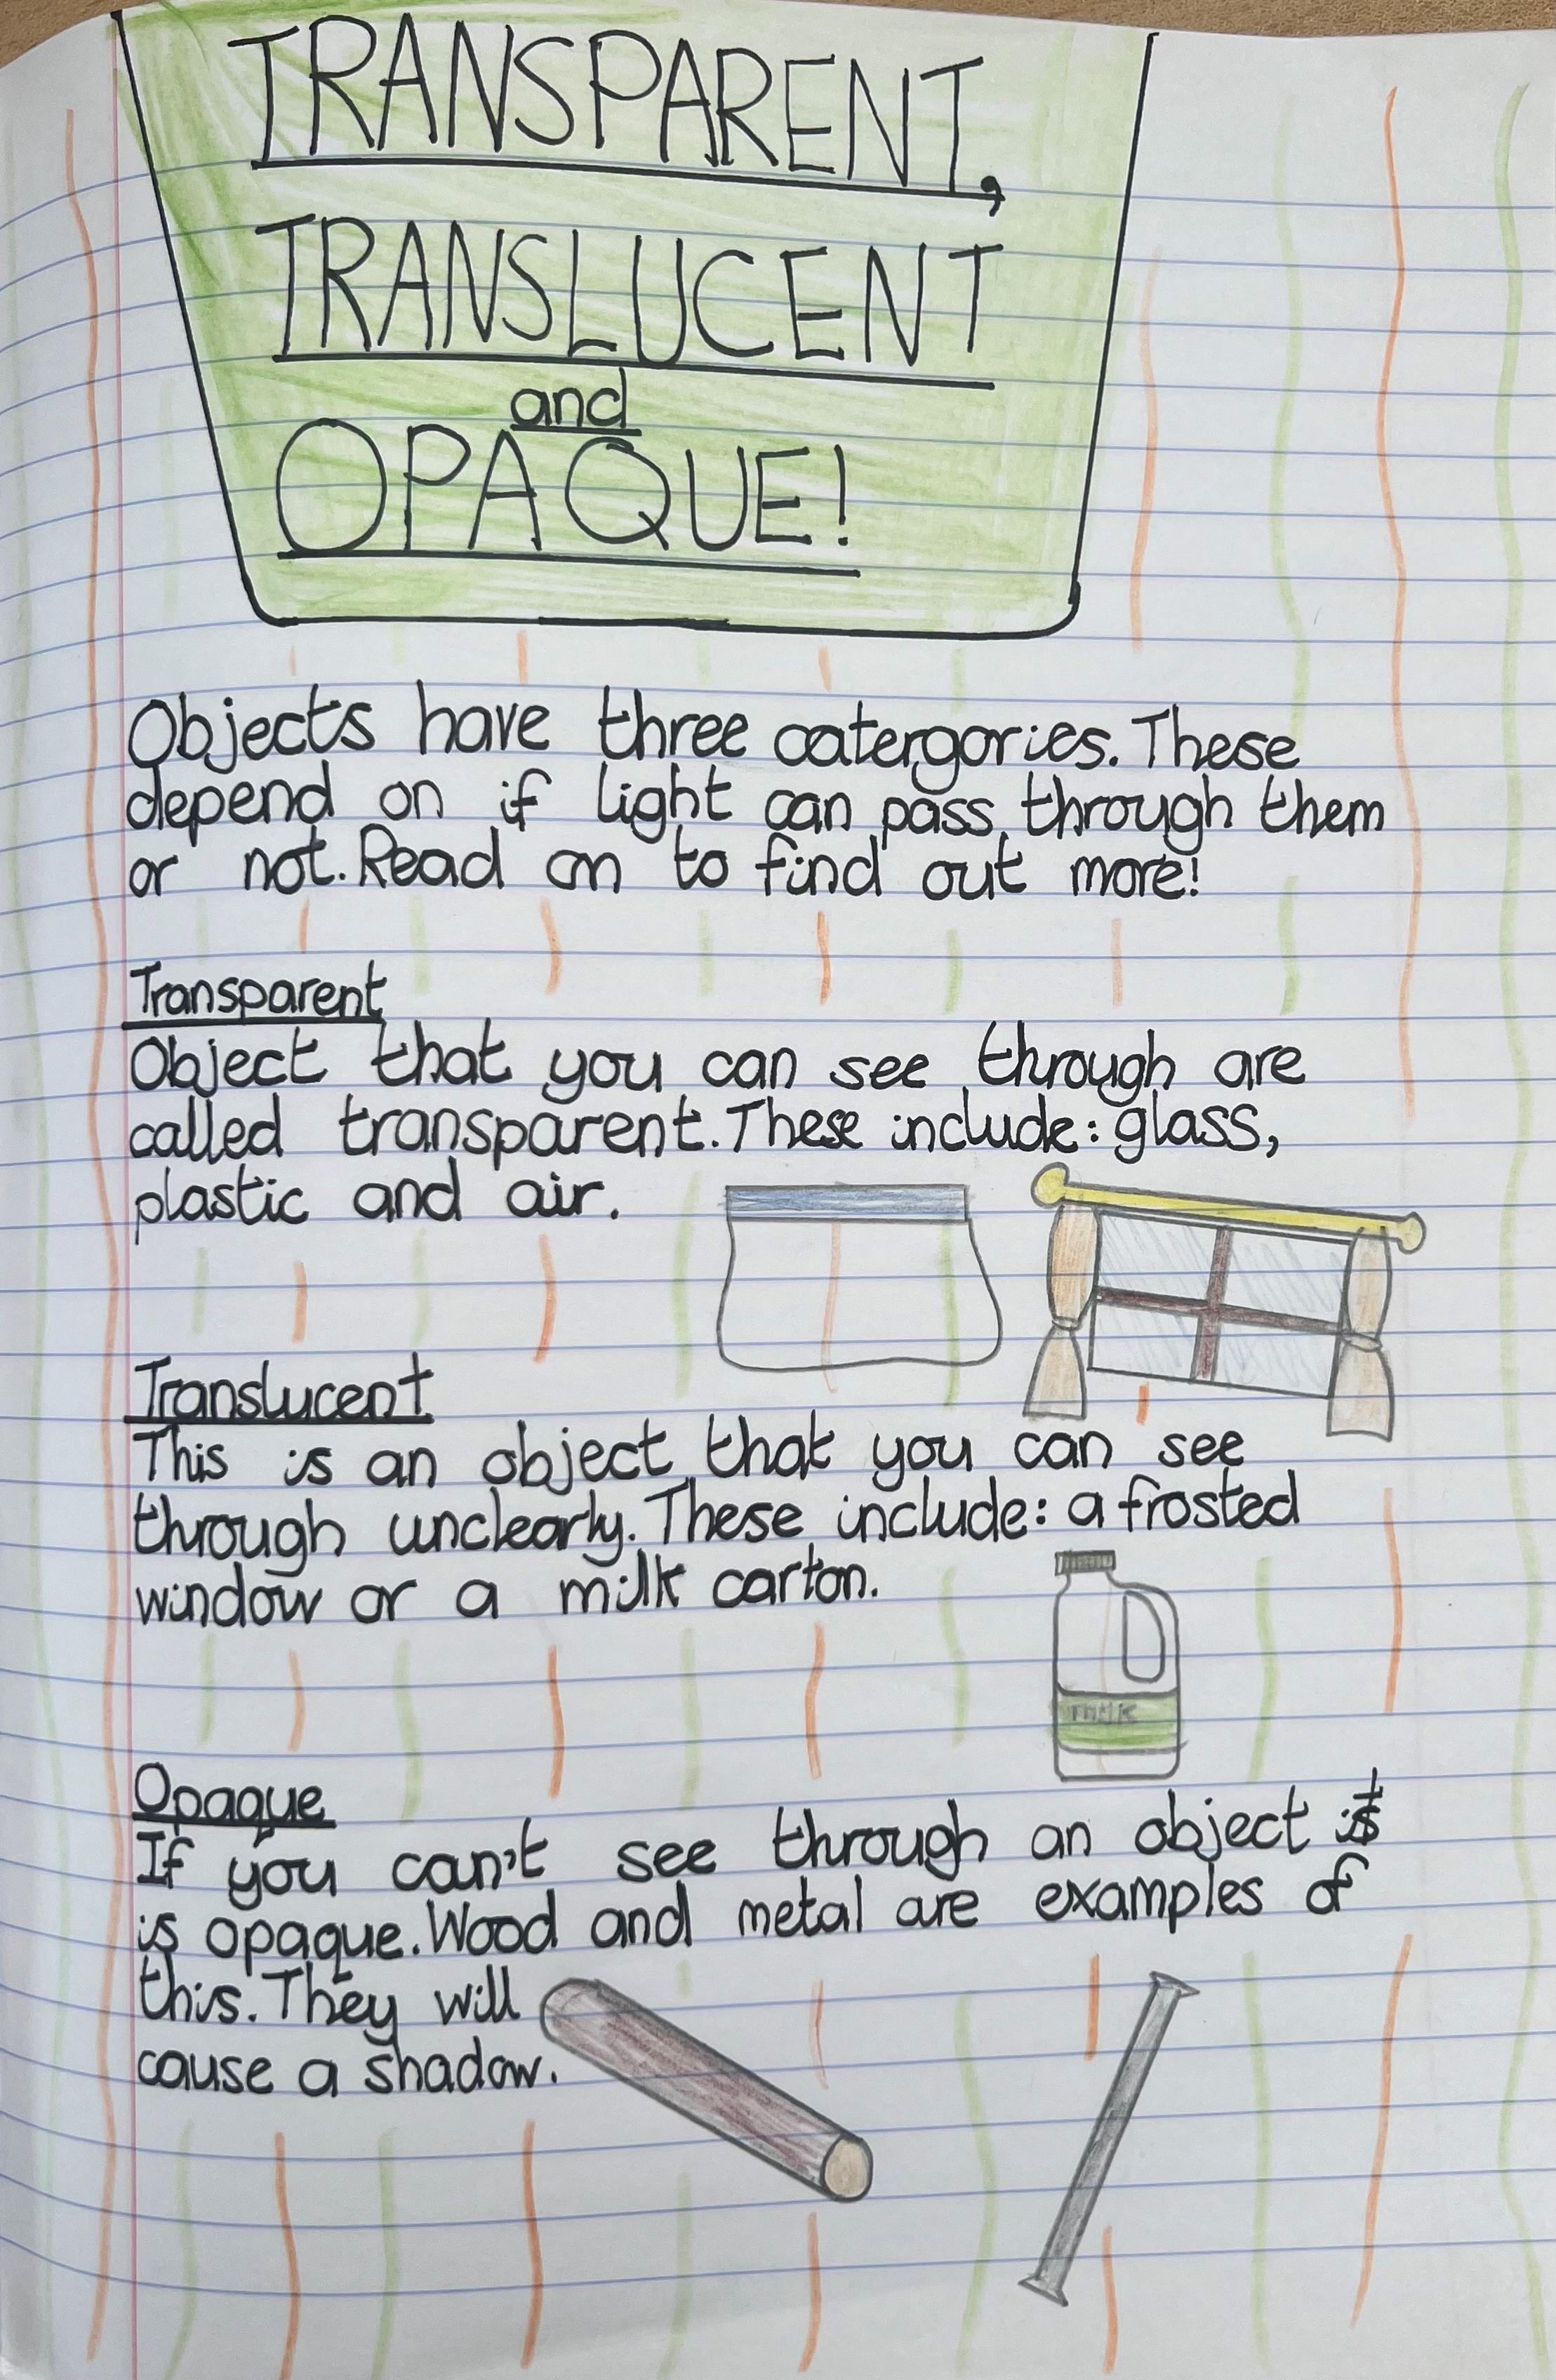 TRANSPARENT,
TRANSLUCENT
and
OPAQUE!
Objects have three catergories. These
depend on if light can pass through them
or not. Read on to find out more!
Transparent
Object that you can see through are
called transparent. These include: glass,
plastic and air.
Translucent
This is an object that you can see
through unclearly. These include: a frosted
window or a milk carton.
MILK
Opaque
If you can't see through an object it
is opaque. Wood and metal are examples of
this. They will
cause a shadow.